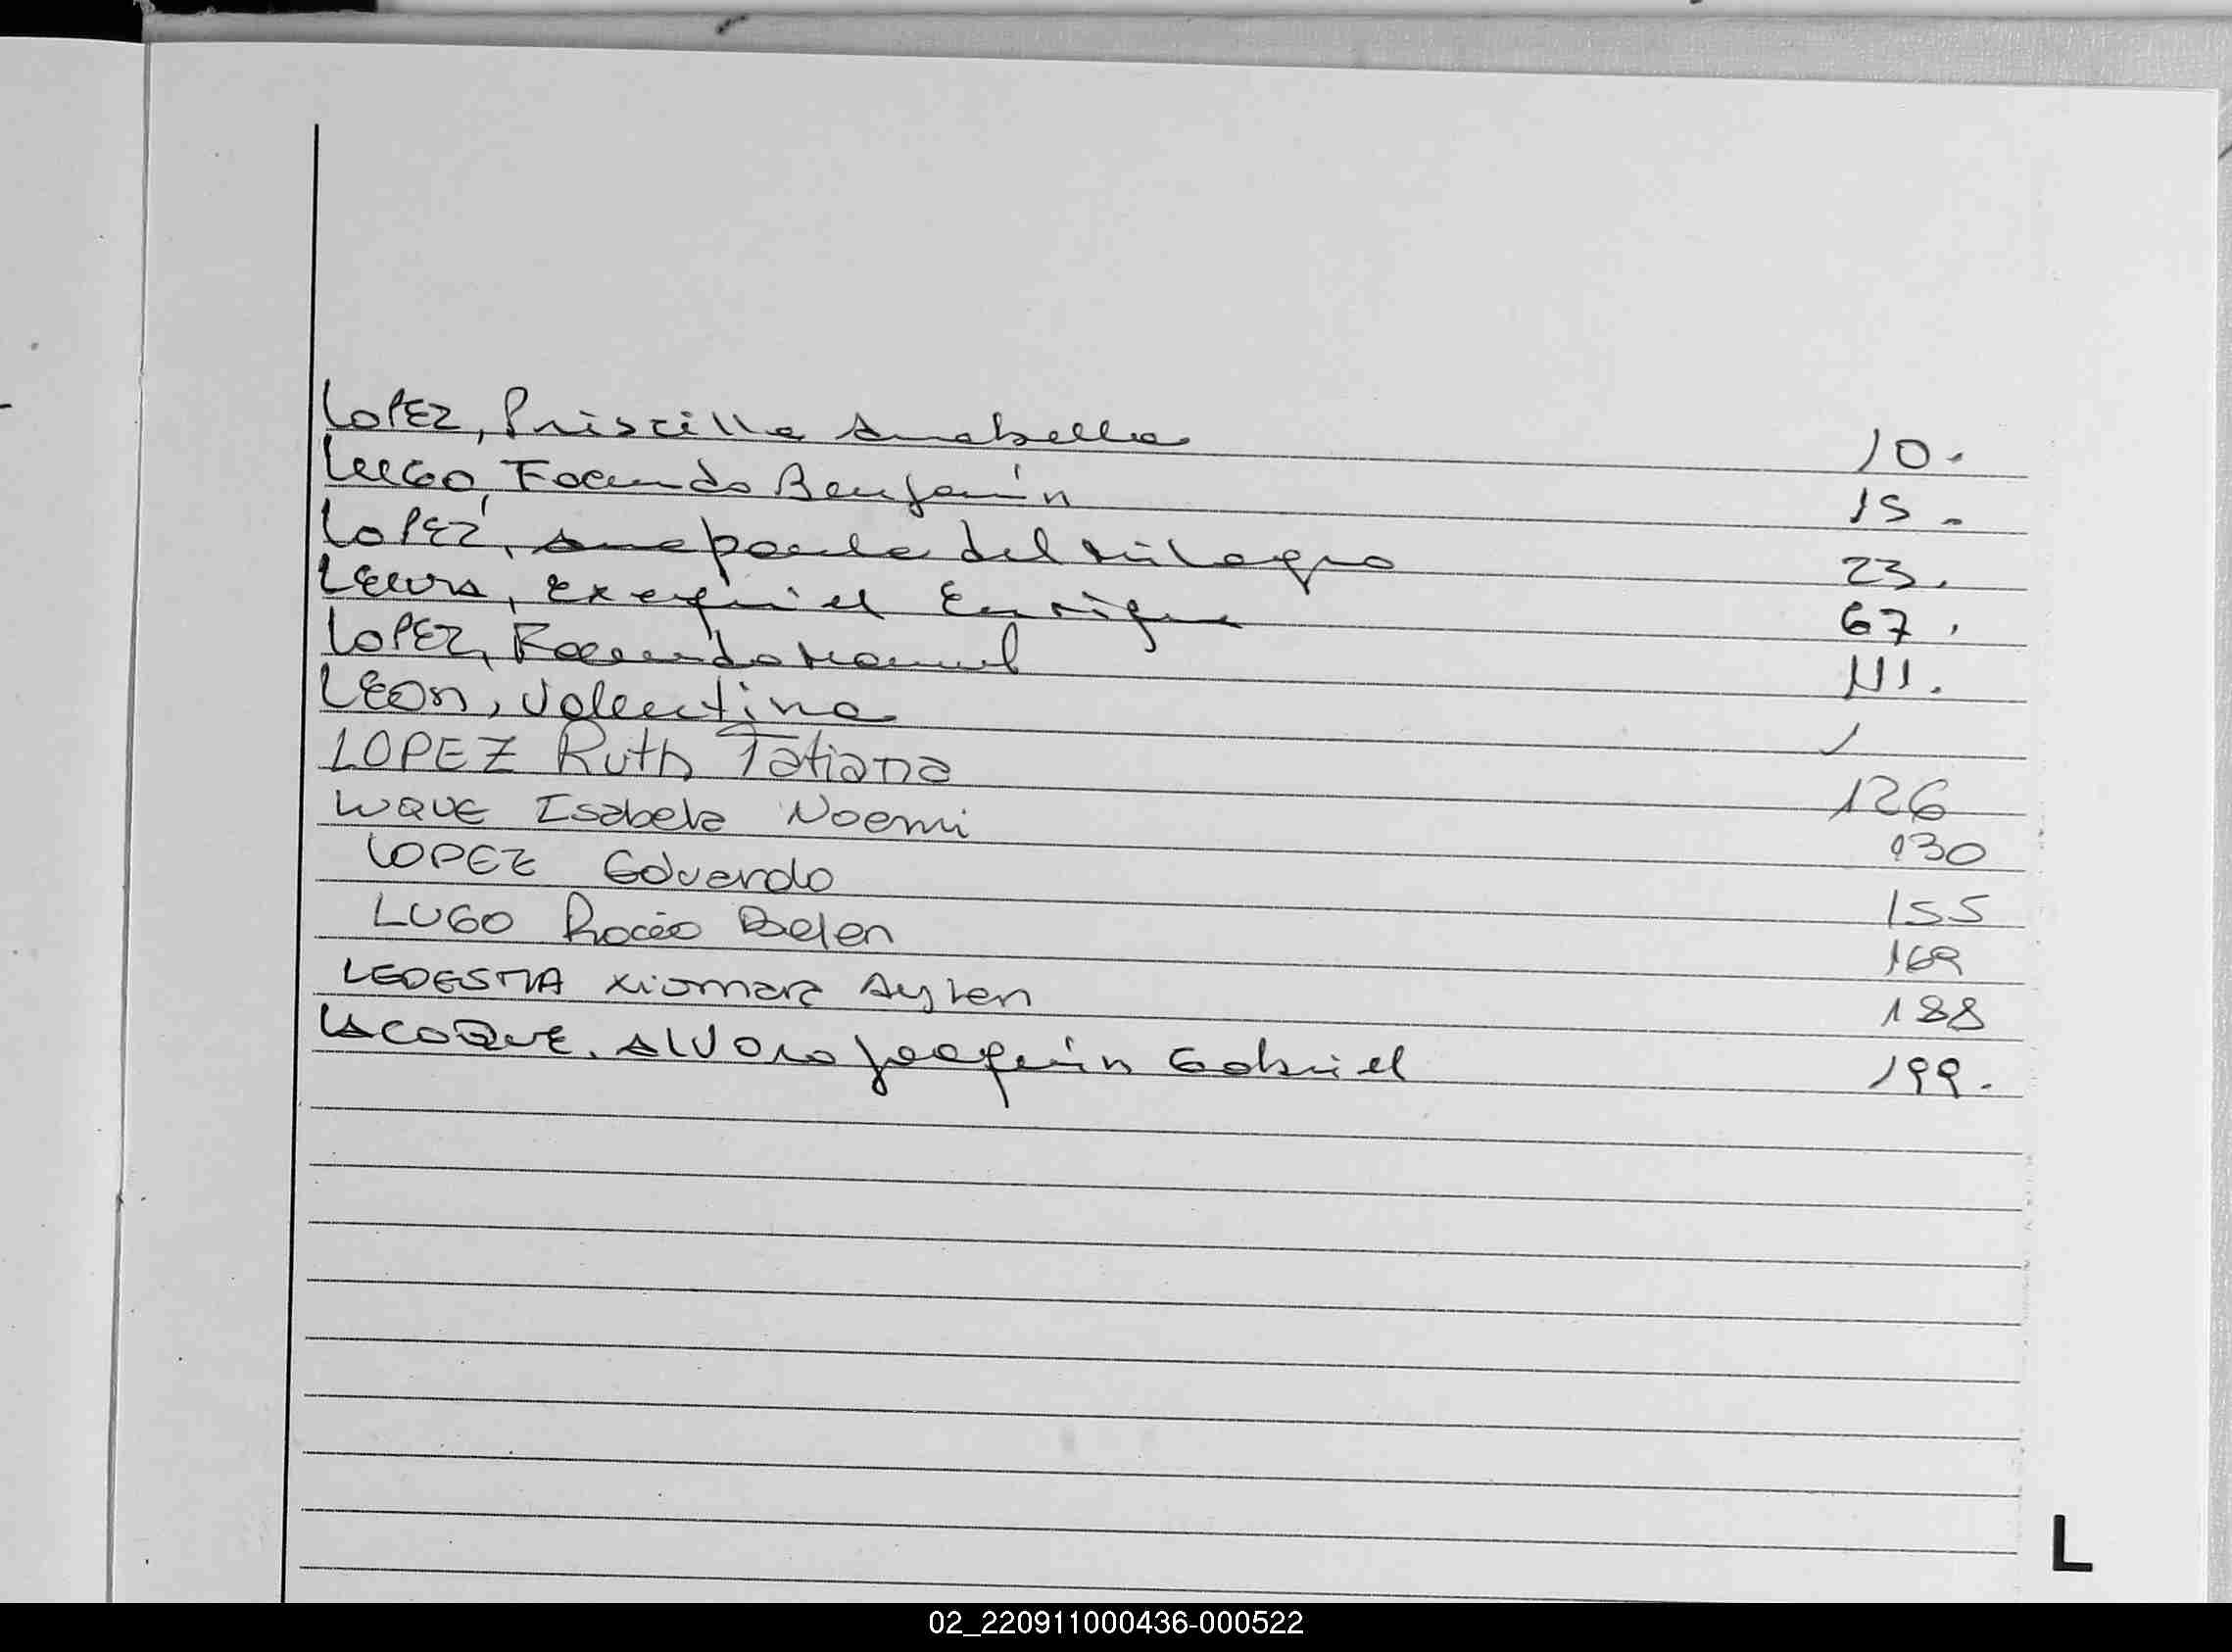 LOPEZ, Priscilla Anabella 10.
LUGO, Facundo Benjamín 15.
LOPEZ, Ana paula del Milagro 23.
Exequiel Enrique 67.
LOPEZ, Facundo Manuel 111.
LEON, Valentina /
LOPEZ Ruth Tatiana 126
LUQUE Isabela Noemi 130
LOPEZ Eduardo 155
LUGO Rocío Belen 169
LEDESMA Xiomara Aylen 188
LACOQUE, Alvaro Joaquín Gabriel 199.
L
02_220911000436-000522